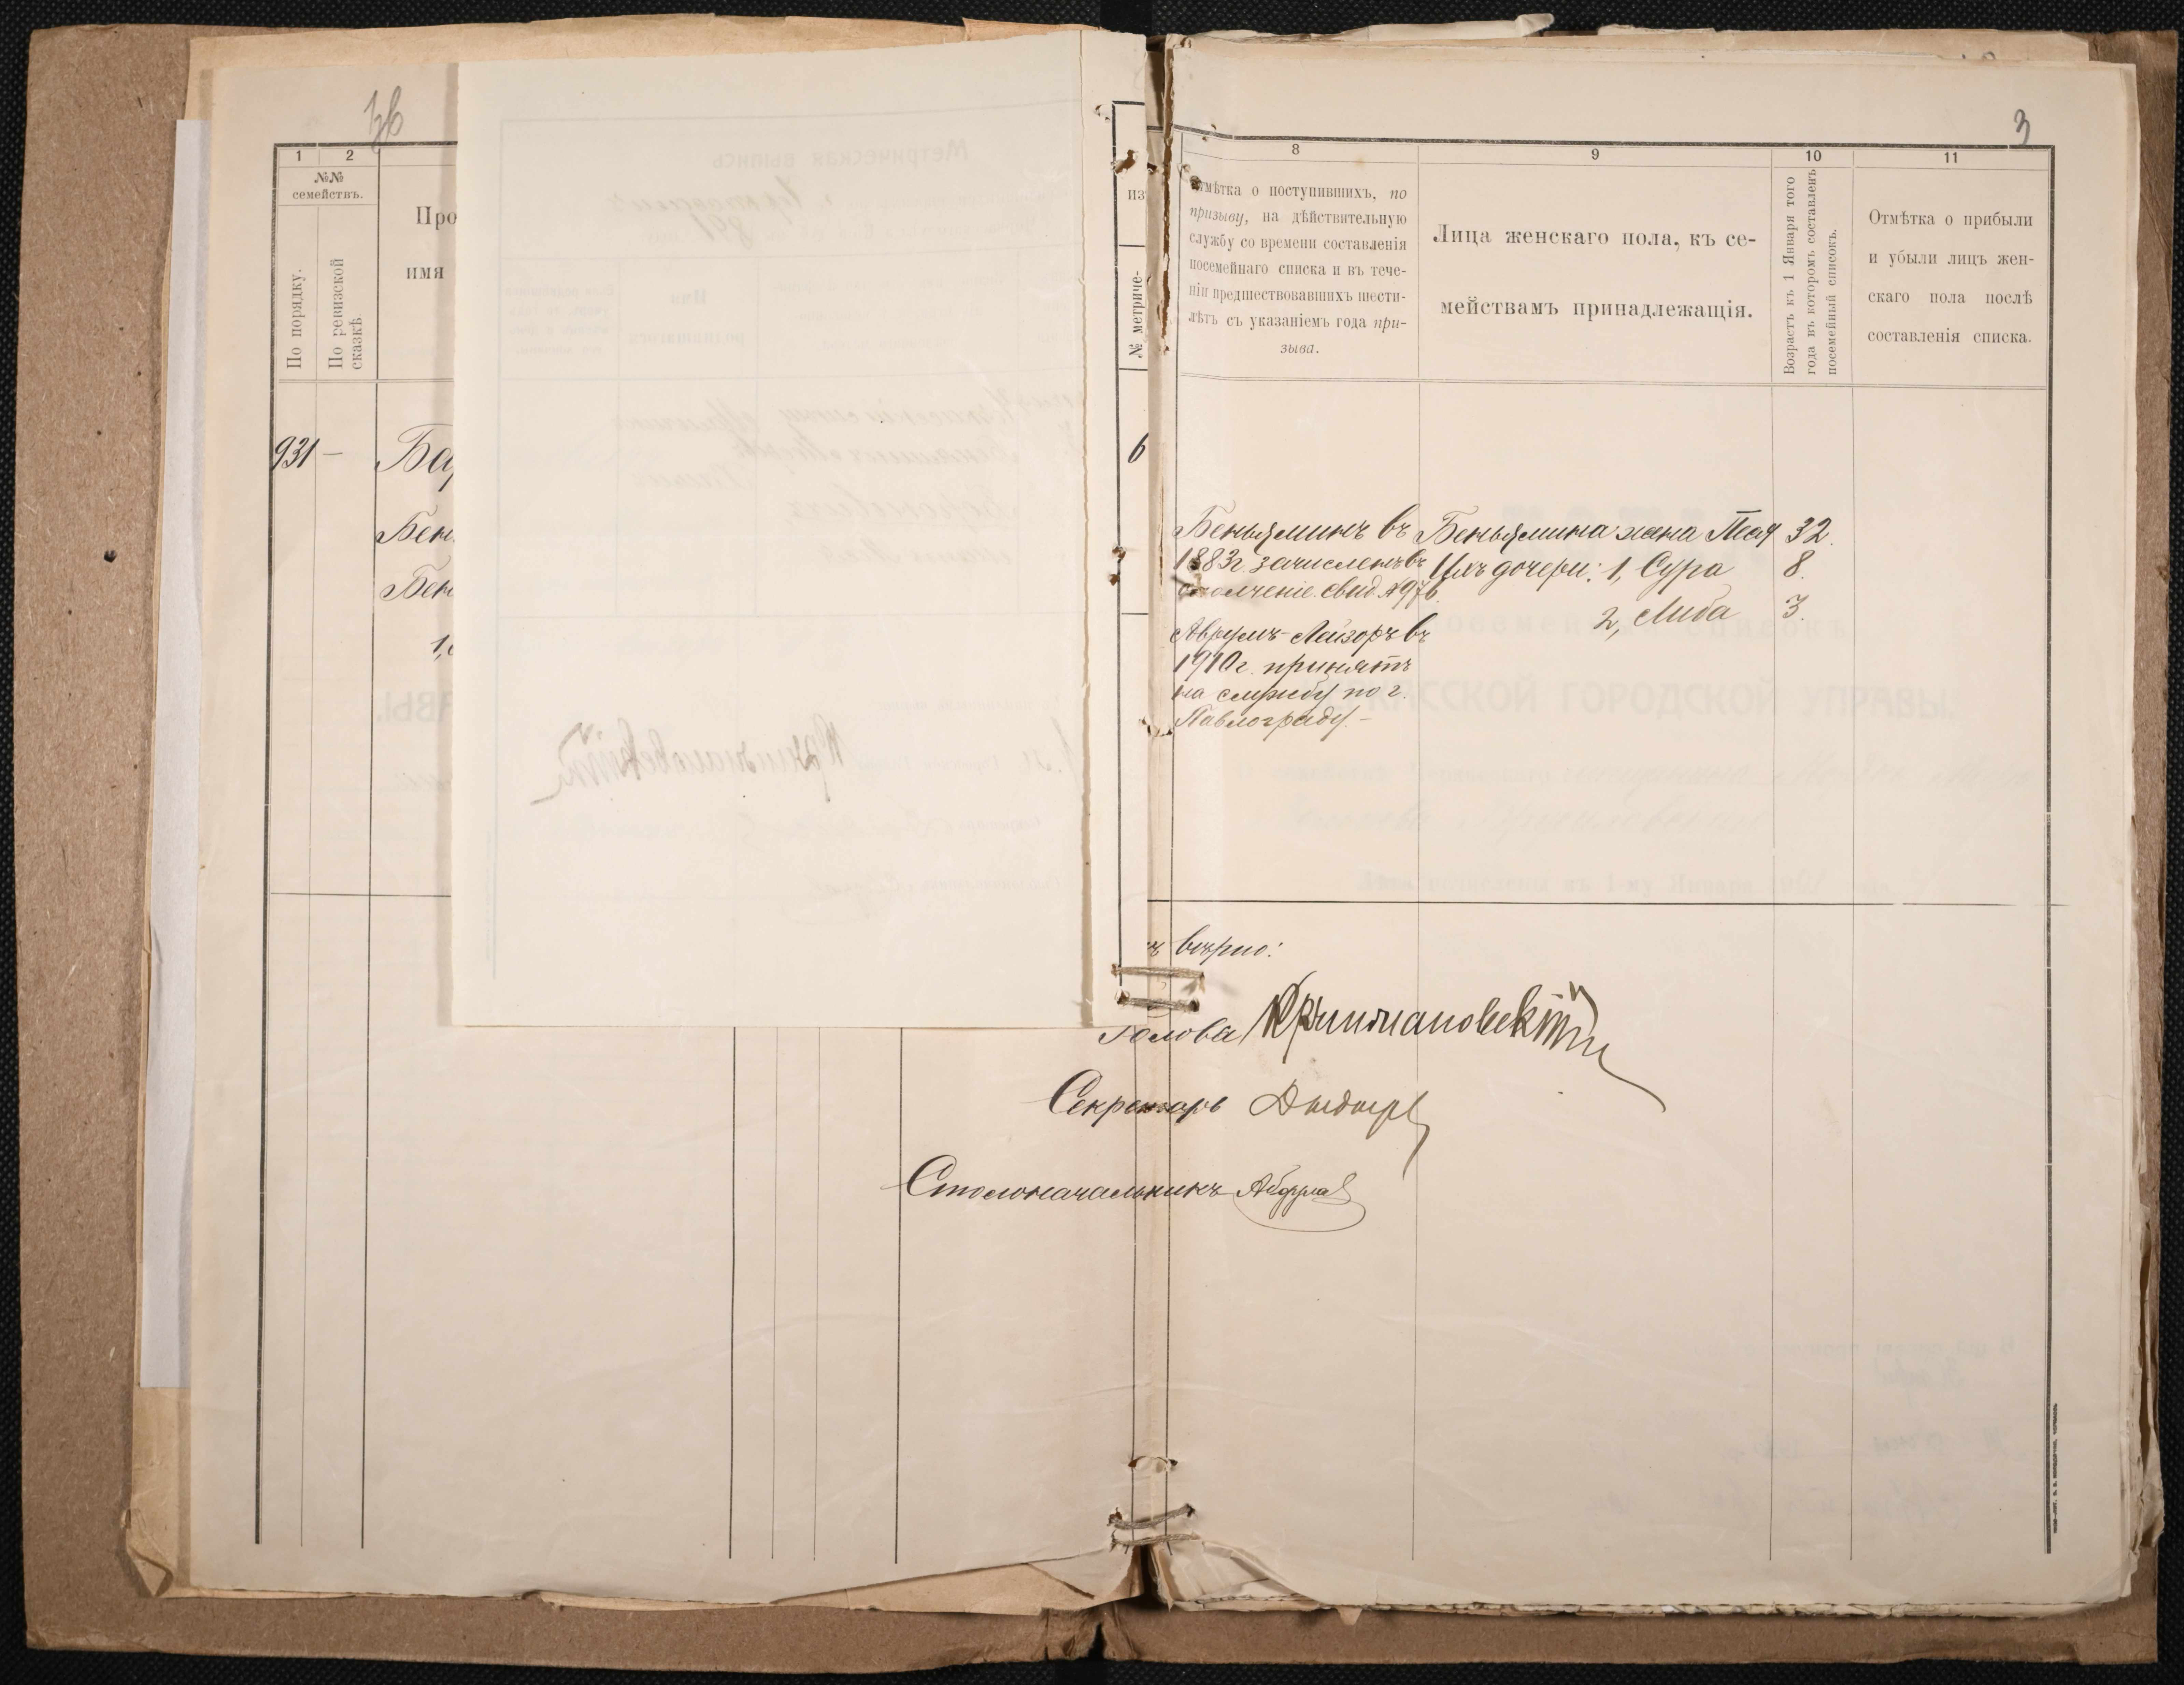 3
1
2
№№
семействъ.
По порядку.
По ревизской
сказкѣ
Про
имя
931 —
Ба
Бен
Бен
1,
из
№ метриче-
6
8
9
10
11
отмѣтка о поступившихъ, по
призыву, на дѣйствительную
службу со времени составленія
посемейнаго списка и въ тече-
ніи предшествовавшихъ шести-
лѣтъ съ указаніемъ года при-
зыва.
Лица женскаго пола, къ се-
мействамъ принадлежащія.
Возрастъ къ 1 Января того
года въ которомъ составленъ
посемейный списокъ.
Отмѣтка о прибыли
и убыли лицъ жен-
скаго пола послѣ
составленія списка.
Беньяминъ въ
1883г. зачисленъ въ
ополченіе. свид. №976.
Аврумъ-Лейзоръ въ
1910г. принятъ
на службу по г.
Павлограду. —
Беньямина жена Песя 32.
Ихъ дочери: 1, Сура 8.
2, Либа 3.
ъ вѣрно:
Голова
Секретарь
Столоначальникъ
Метрическая выпись
КАССКОЙ ГОРОДСКОЙ УПРАВЫ